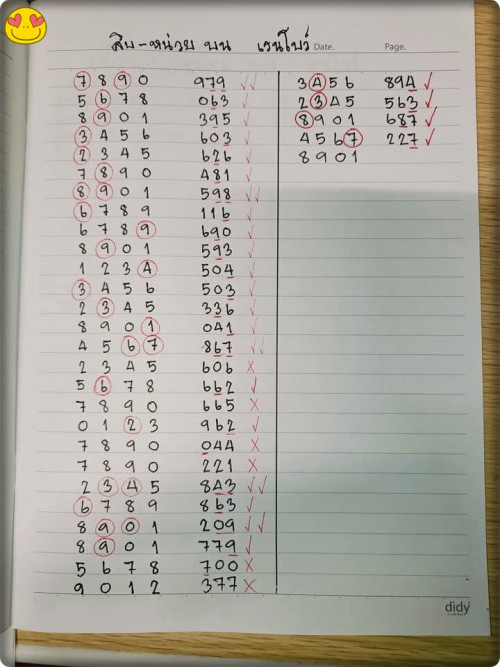 สิบ-หน่วย บน เรนโบว์ Date. Page.
7 8 9 0 979 ✓✓
5 6 7 8 063 ✓
8 9 0 1 395 ✓
3 4 5 6 603 ✓
2 3 4 5 626 ✓
7 8 9 0 481 ✓
8 9 0 1 598 ✓✓
6 7 8 9 116 ✓
6 7 8 9 690 ✓
8 9 0 1 593 ✓
1 2 3 4 504 ✓
3 4 5 6 503 ✓
2 3 4 5 336 ✓
8 9 0 1 041 ✓
4 5 6 7 867 ✓✓
2 3 4 5 606 X
5 6 7 8 662 ✓
7 8 9 0 665 X
0 1 2 3 962 ✓
7 8 9 0 044 X
7 8 9 0 221 X
2 3 4 5 843 ✓✓
6 7 8 9 863 ✓
8 9 0 1 209 ✓✓
8 9 0 1 779 ✓
5 6 7 8 700 X
9 0 1 2 377 X
3 4 5 6 894 ✓
2 3 4 5 563 ✓
8 9 0 1 687 ✓
4 5 6 7 227 ✓
8 9 0 1
didy